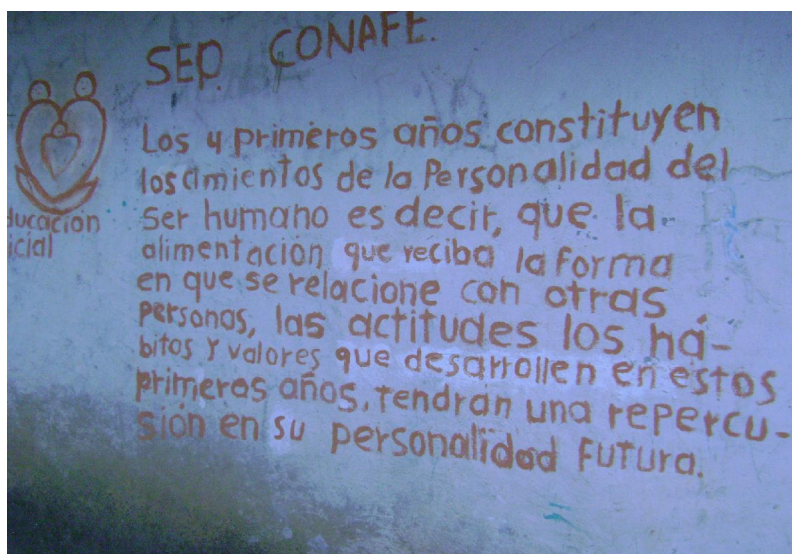 SEP. CONAFE.
ducación
icial
Los 4 primeros años constituyen
los cimientos de la Personalidad del
ser humano es decir, que la
alimentación que reciba la forma
en que se relacione con otras
personas, las actitudes los há-
bitos y valores que desarrollen en estos
primeros años, tendrán una repercu-
sión en su personalidad futura.